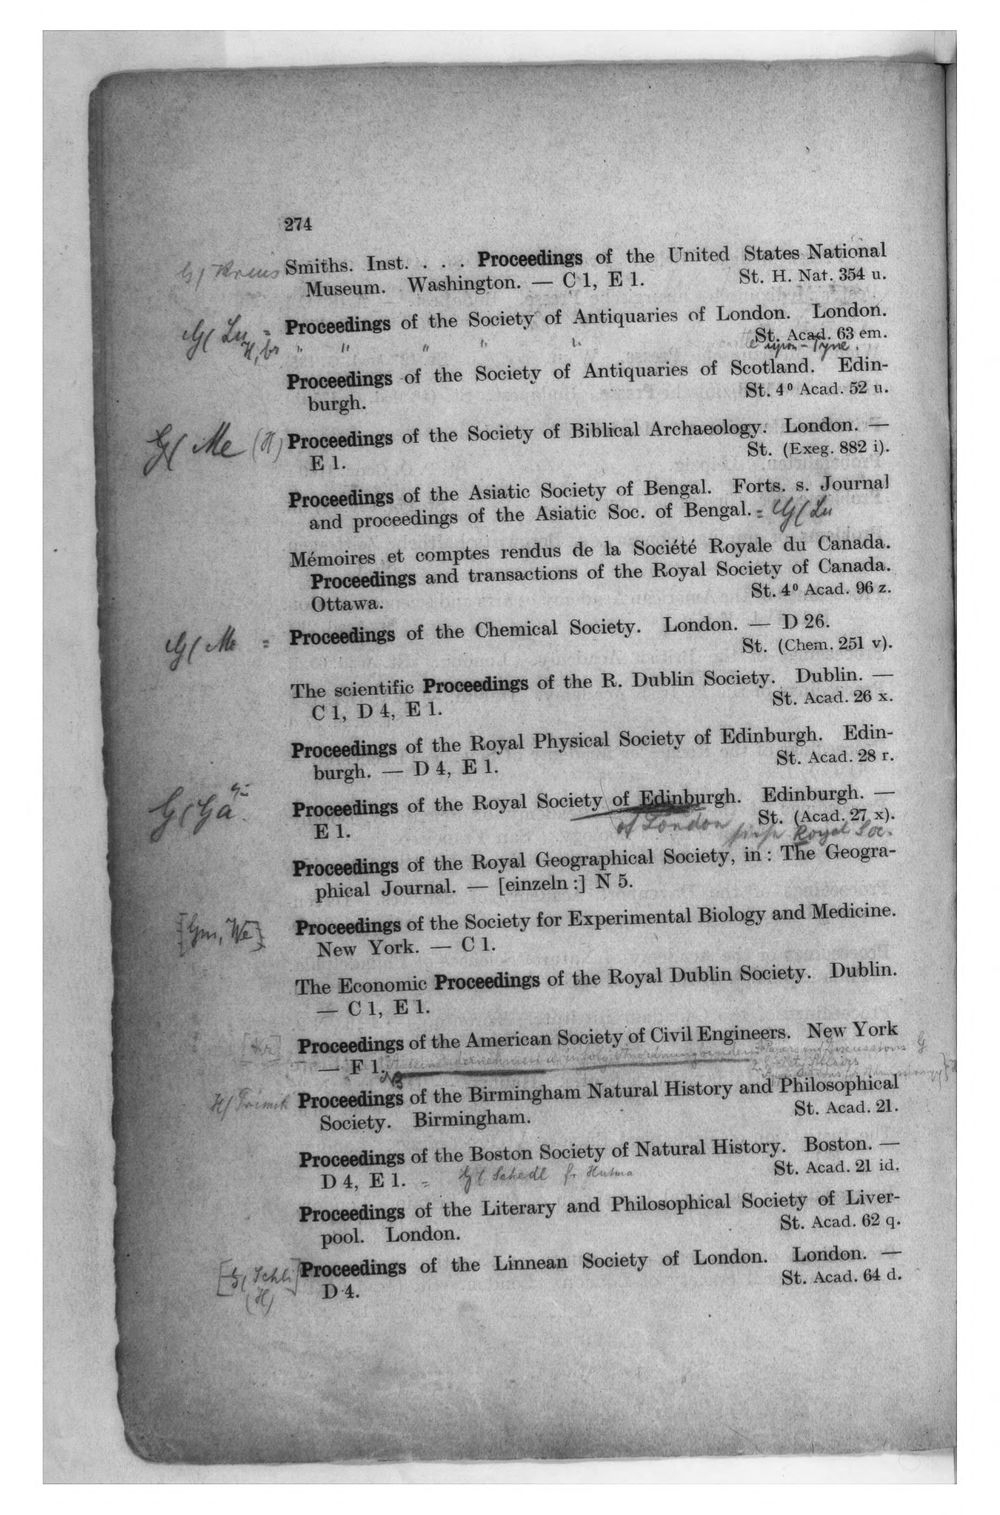 274
Smiths. Inst. . . . Proceedings of the United States National
Museum. Washington. — C 1, E 1. St. H. Nat. 354 u.
G( Lu = Proceedings of the Society of Antiquaries of London. London.
St. Acad. 63 em.
" " " " " upon-Tyne.
Proceedings of the Society of Antiquaries of Scotland. Edin-
burgh. St. 4⁰ Acad. 52 u.
G( Me (H) Proceedings of the Society of Biblical Archaeology. London. —
E 1. St. (Exeg. 882 i).
Proceedings of the Asiatic Society of Bengal. Forts. s. Journal
and proceedings of the Asiatic Soc. of Bengal. = G( Lu
Mémoires et comptes rendus de la Société Royale du Canada.
Proceedings and transactions of the Royal Society of Canada.
Ottawa. St. 4⁰ Acad. 96 z.
G( Me = Proceedings of the Chemical Society. London. — D 26.
St. (Chem. 251 v).
The scientific Proceedings of the R. Dublin Society. Dublin. —
C 1, D 4, E 1. St. Acad. 26 x.
Proceedings of the Royal Physical Society of Edinburgh. Edin-
burgh. — D 4, E 1. St. Acad. 28 r.
G( Gä Proceedings of the Royal Society of Edinburgh. Edinburgh. —
E 1. St. (Acad. 27 x).
of London Royal Soc.
Proceedings of the Royal Geographical Society, in: The Geogra-
phical Journal. — [einzeln:] N 5.
[Gm, We] Proceedings of the Society for Experimental Biology and Medicine.
New York. — C 1.
The Economic Proceedings of the Royal Dublin Society. Dublin.
— C 1, E 1.
Proceedings of the American Society of Civil Engineers. New York
— F 1.
Proceedings of the Birmingham Natural History and Philosophical
Society. Birmingham. St. Acad. 21.
Proceedings of the Boston Society of Natural History. Boston. —
D 4, E 1. = G( Schedl St. Acad. 21 id.
Proceedings of the Literary and Philosophical Society of Liver-
pool. London. St. Acad. 62 q.
[G( Schli] Proceedings of the Linnean Society of London. London. —
(H) D 4. St. Acad. 64 d.